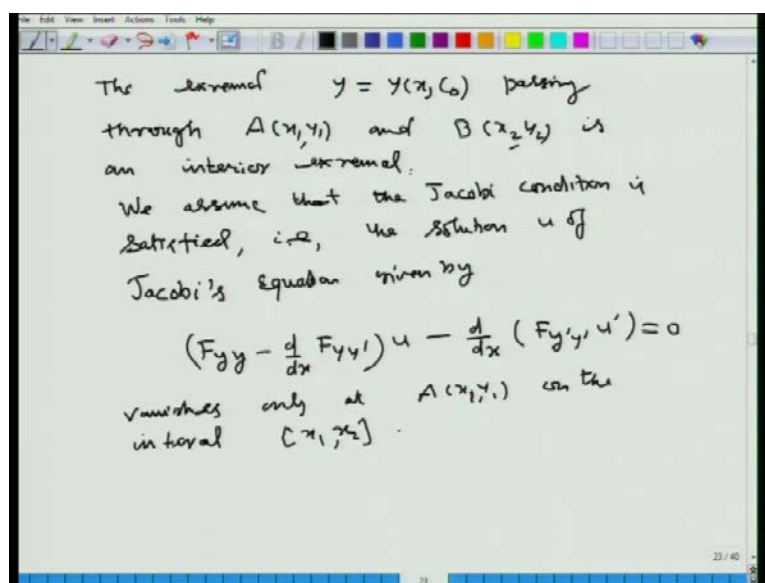 File Edit View Insert Actions Tools Help
The extremal y = y(x, C₀) passing
through A(x₁, y₁) and B(x₂, y₂) is
an interior extremal.
We assume that the Jacobi condition is
satisfied, i.e., the solution u of
Jacobi's Equation given by
(Fyy - d/dx Fyy') u - d/dx (Fy'y' u') = 0
vanishes only at A(x₁, y₁) on the
interval [x₁, x₂].
23 / 40
23